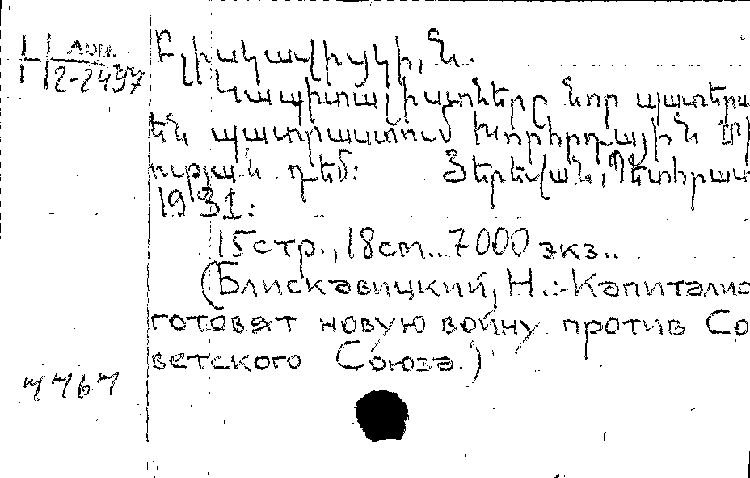 Н арм. 2-2497
Բլիսկավիցկի, Ն.
Կապիտալիստները նոր պատերա
են պատրաստում Խորհրդային
ության դեմ: Յերեվան, Պետհրատ
1931:
15 стр., 18 см.. 7000 экз..
(Блискавицкий, Н.:-Капиталис
готовят новую войну против Со
ветского Союза.)